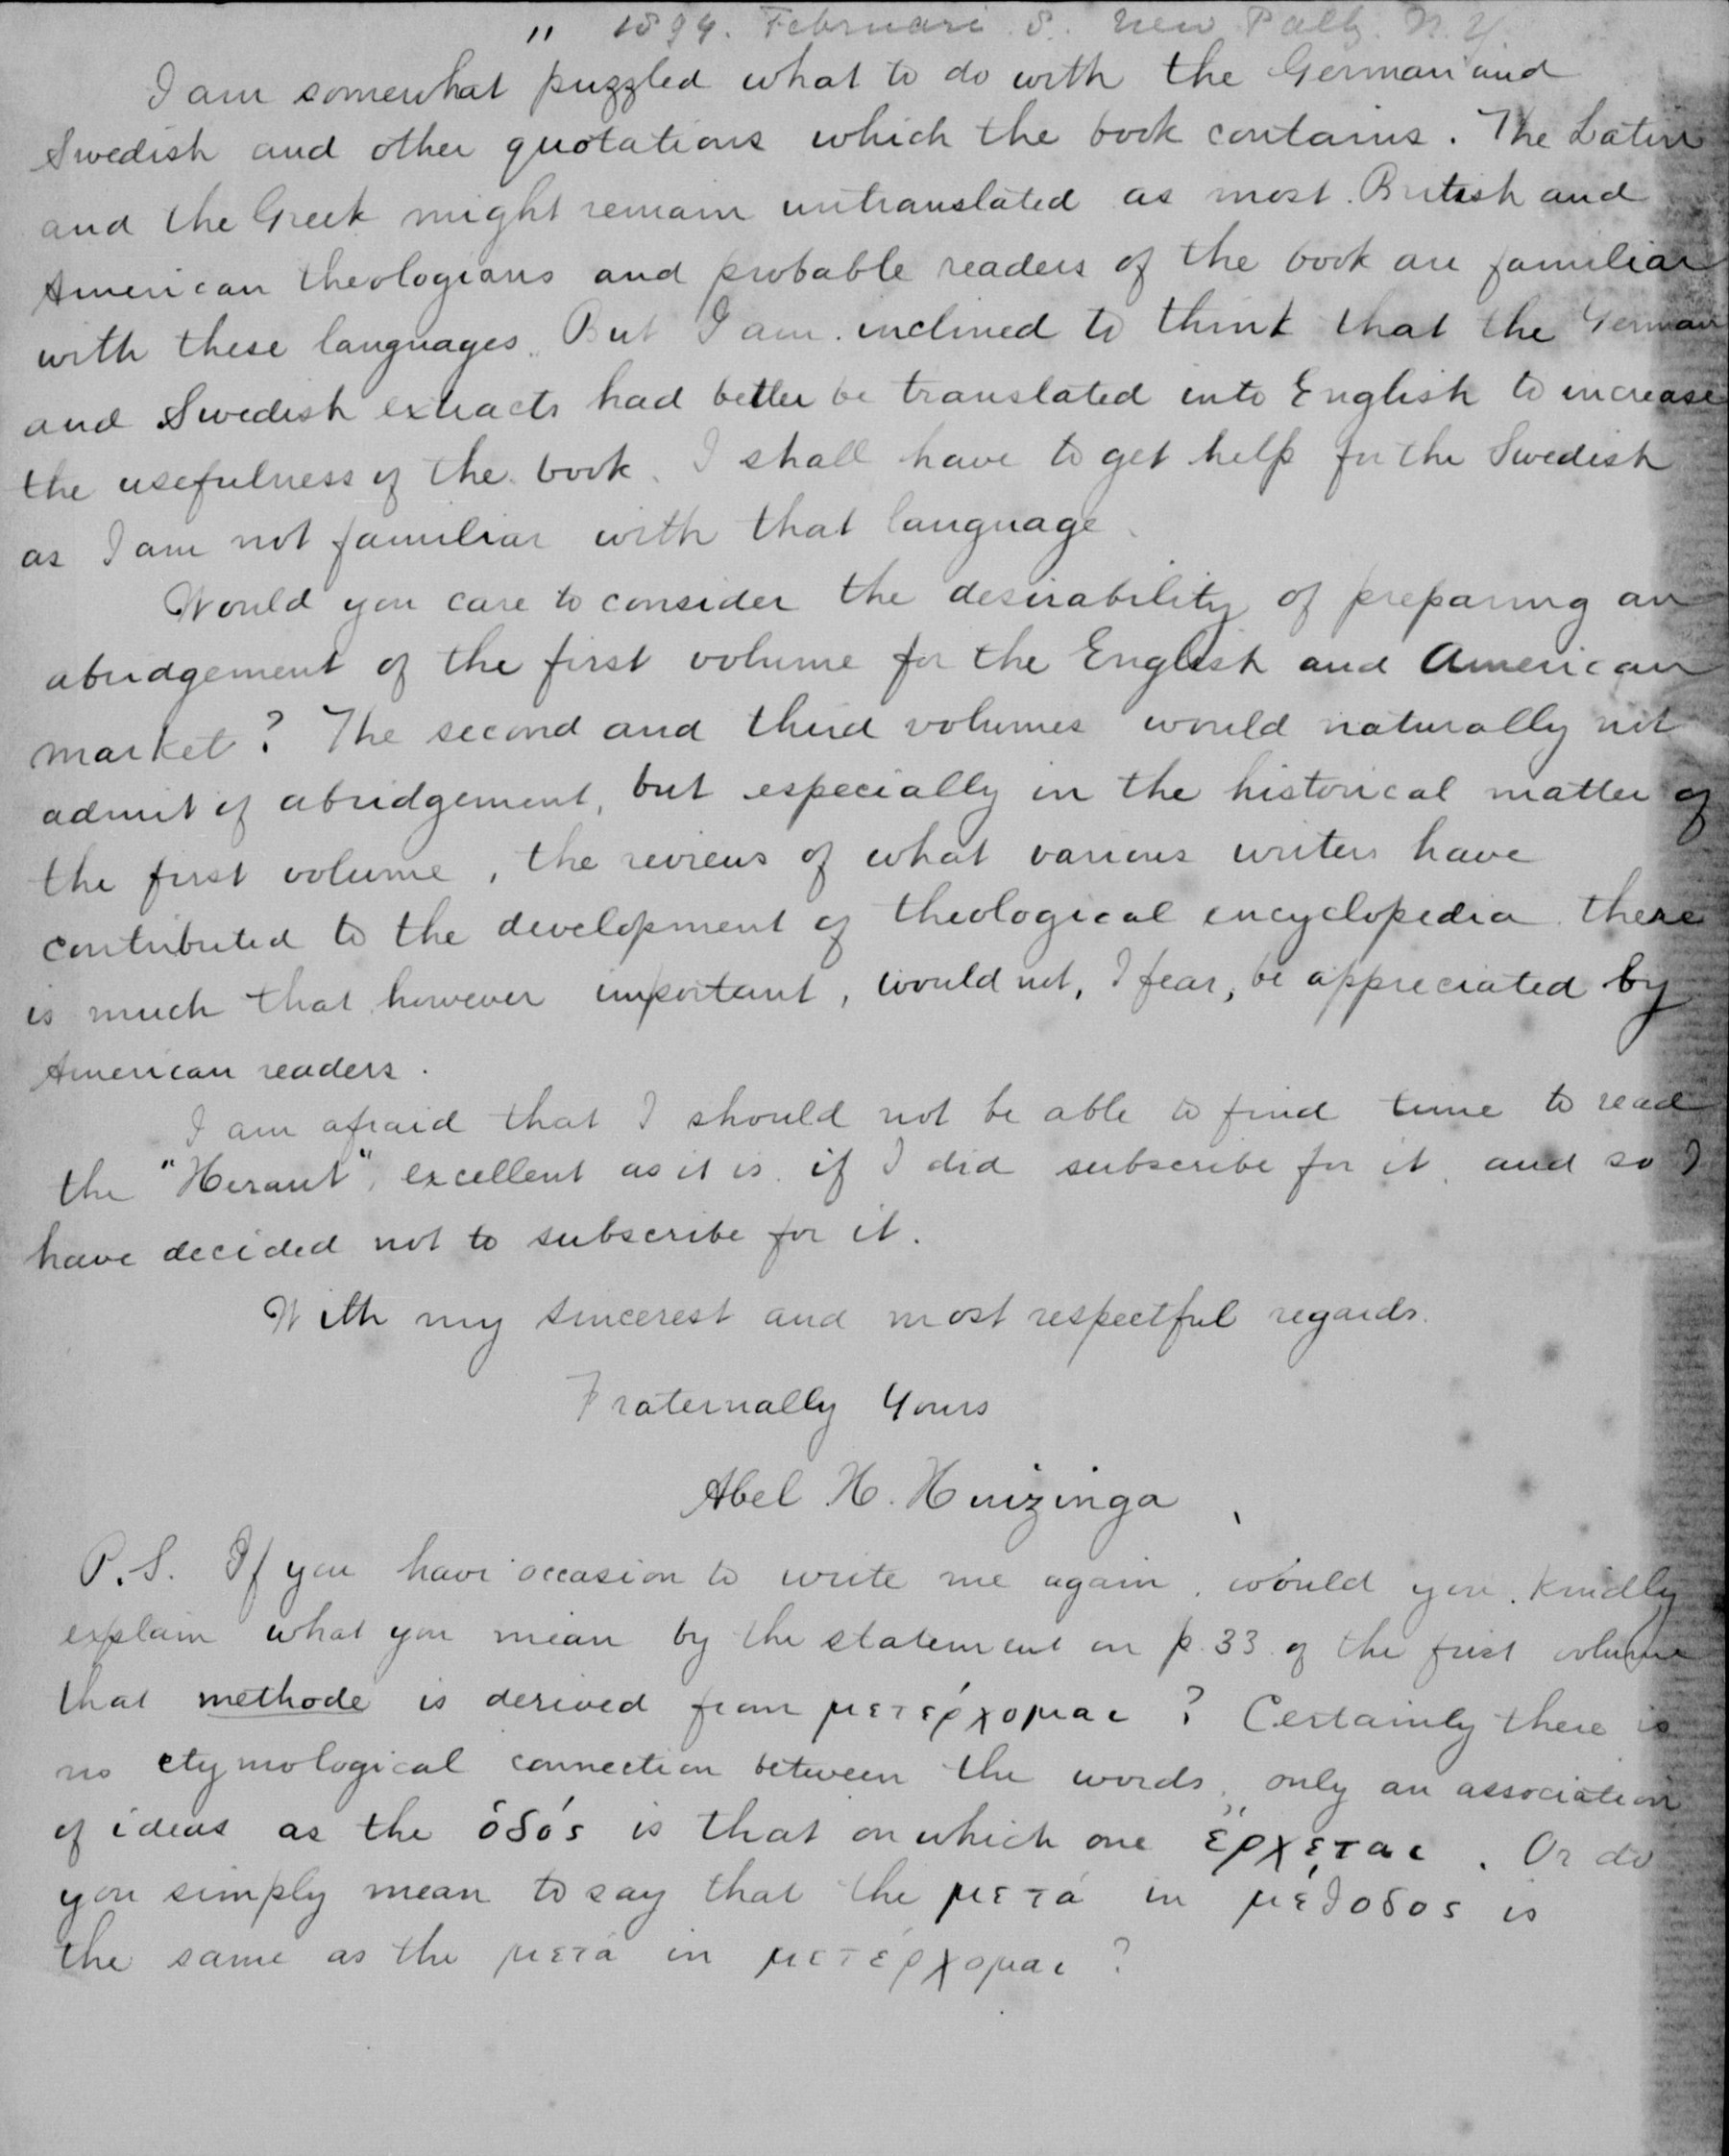 " 1894. Februari 8. New Paltz. N.Y.
I am somewhat puzzled what to do with the German and
Swedish and other quotations which the book contains. The Latin
and the Greek might remain untranslated as most British and
American theologians and probable readers of the book are familiar
with these languages. But I am inclined to think that the German
and Swedish extracts had better be translated into English to increase
the usefulness of the book. I shall have to get help for the Swedish
as I am not familiar with that language.
Would you care to consider the desirability of preparing an
abridgement of the first volume for the English and American
market? The second and third volumes would naturally not
admit of abridgement, but especially in the historical matter of
the first volume, the reviews of what various writers have
contributed to the development of theological encyclopedia there
is much that however important, would not, I fear, be appreciated by
American readers.
I am afraid that I should not be able to find time to read
the "Heraut", excellent as it is, if I did subscribe for it, and so I
have decided not to subscribe for it.
With my sincerest and most respectful regards.
Fraternally Yours
Abel H. Huizinga
P.S. If you have occasion to write me again, would you kindly
explain what you mean by the statement on p. 33 of the first volume
that methode is derived from μετέρχομαι? Certainly there is
no etymological connection between the words, only an association
of ideas as the ὁδός is that on which one ἔρχεται. Or do
you simply mean to say that the μετά in μέθοδος is
the same as the μετά in μετέρχομαι?